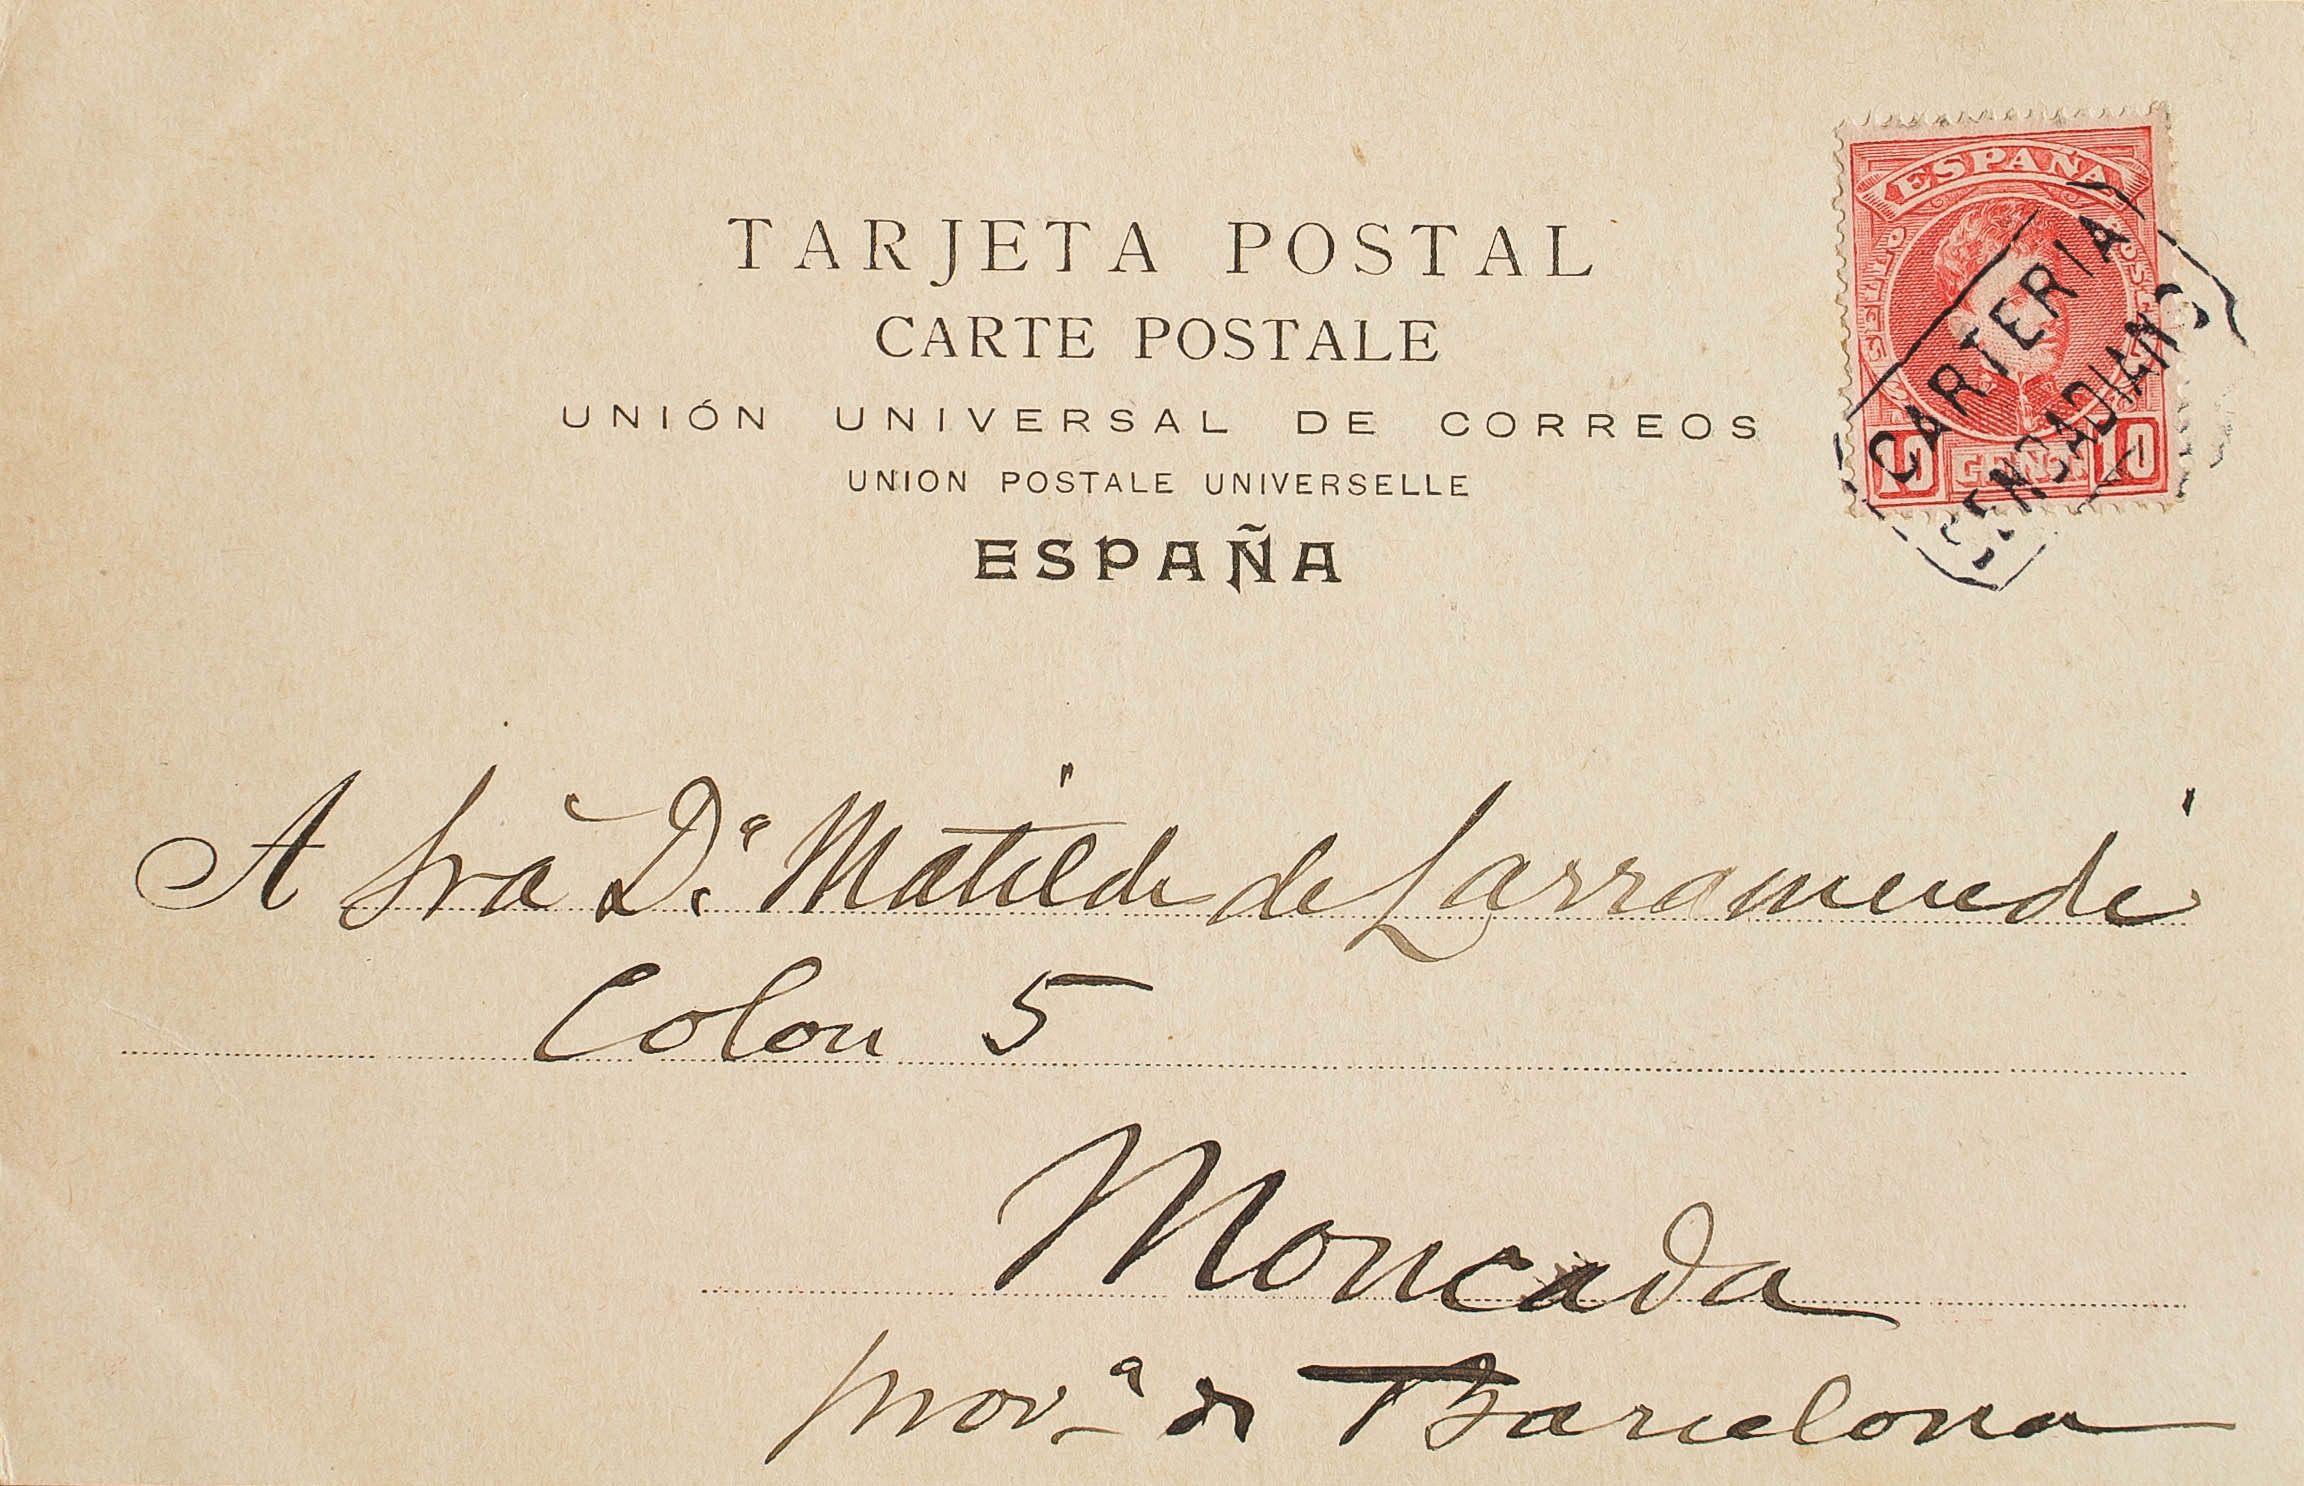 TARJETA POSTAL
CARTE POSTALE
UNIÓN UNIVERSAL DE CORREOS
UNION POSTALE UNIVERSELLE
ESPAÑA
ESPAÑA
10 CENTS 10
CARTERIA
A Sra Dª Matilde de Larramendi
Colon 5
Moncada
provª de Barcelona